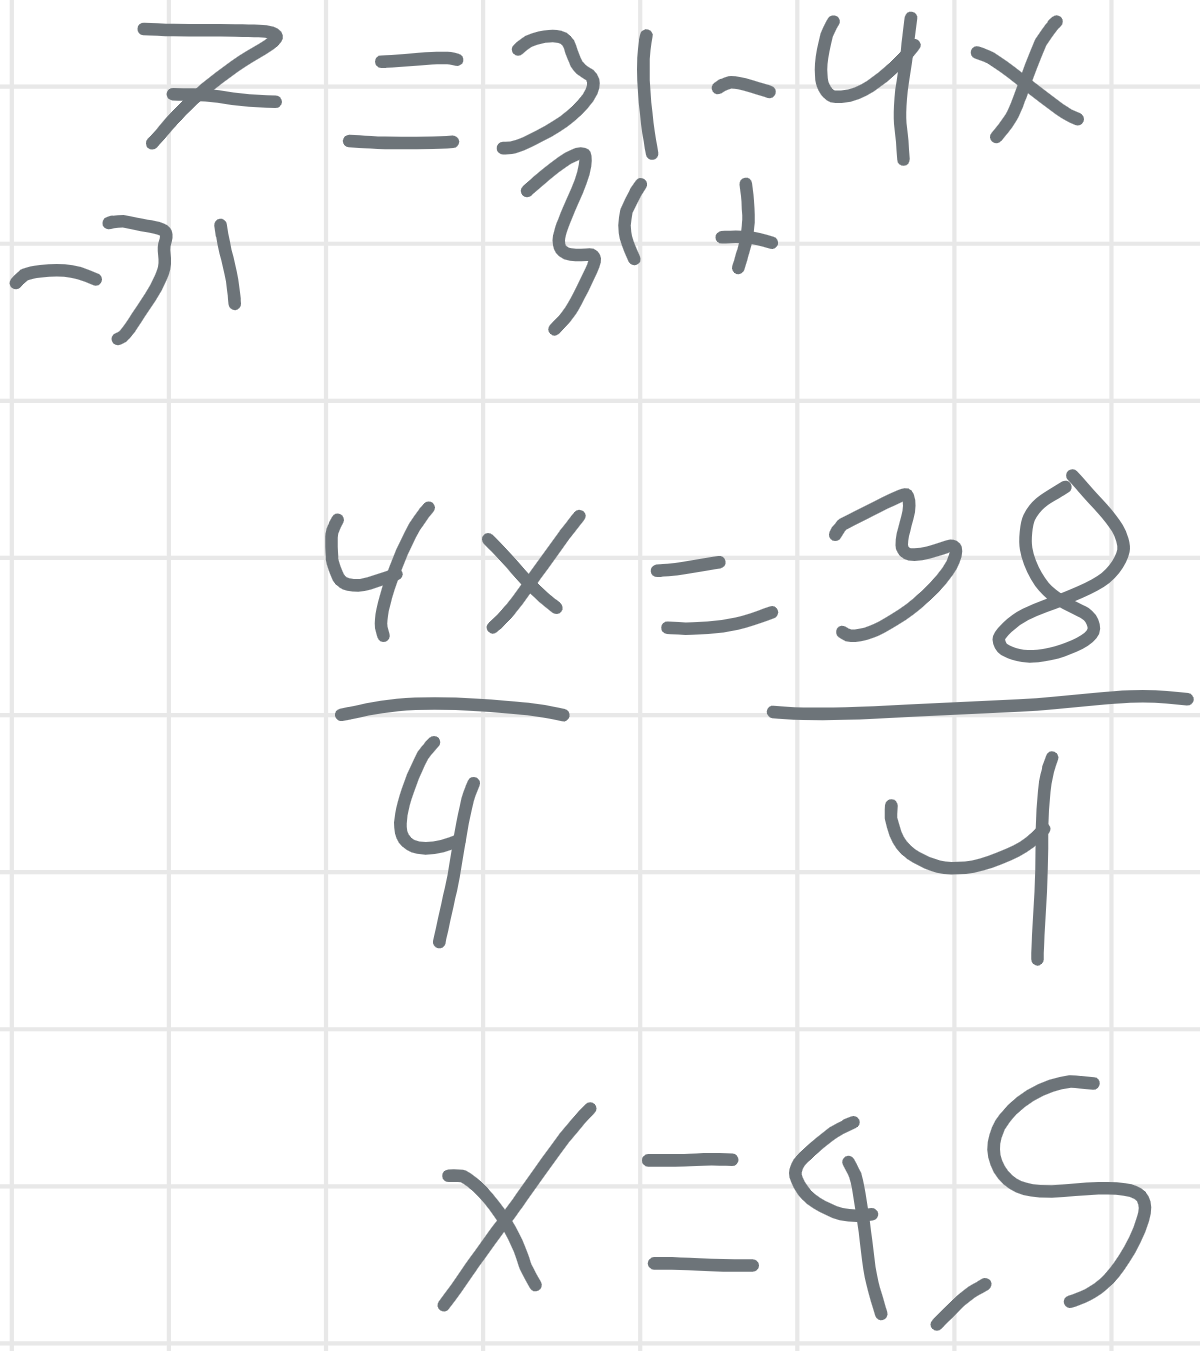 7 = 31 - 4x
-31 31 +
4x = 38
4 4
x = 9,5